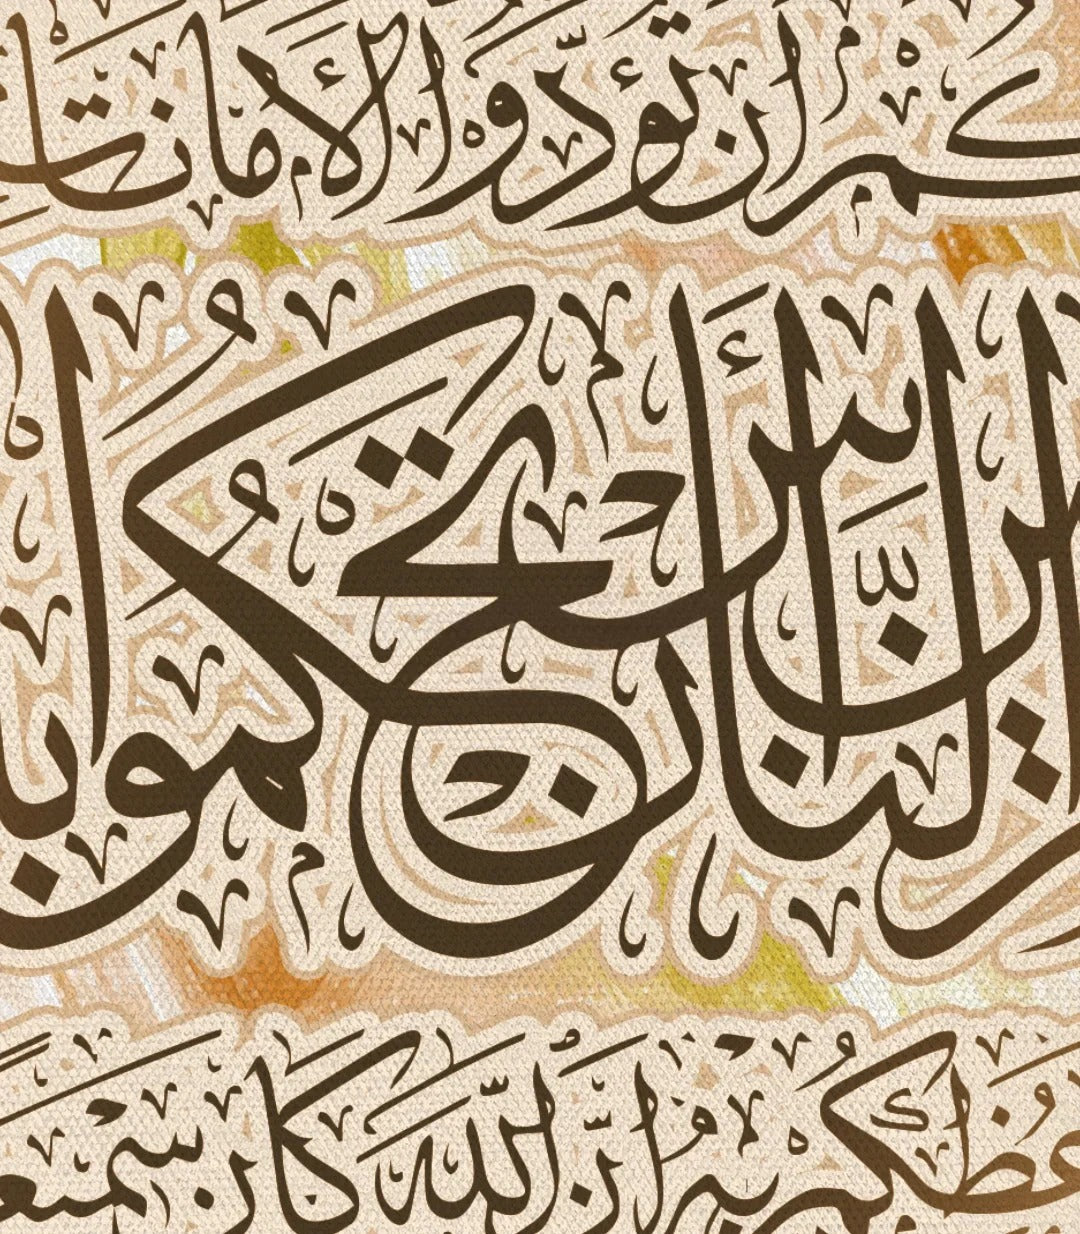 كم أن تؤدوا الأمانات
بين الناس أن تحكموا با
عظكم به إن الله كان سميع